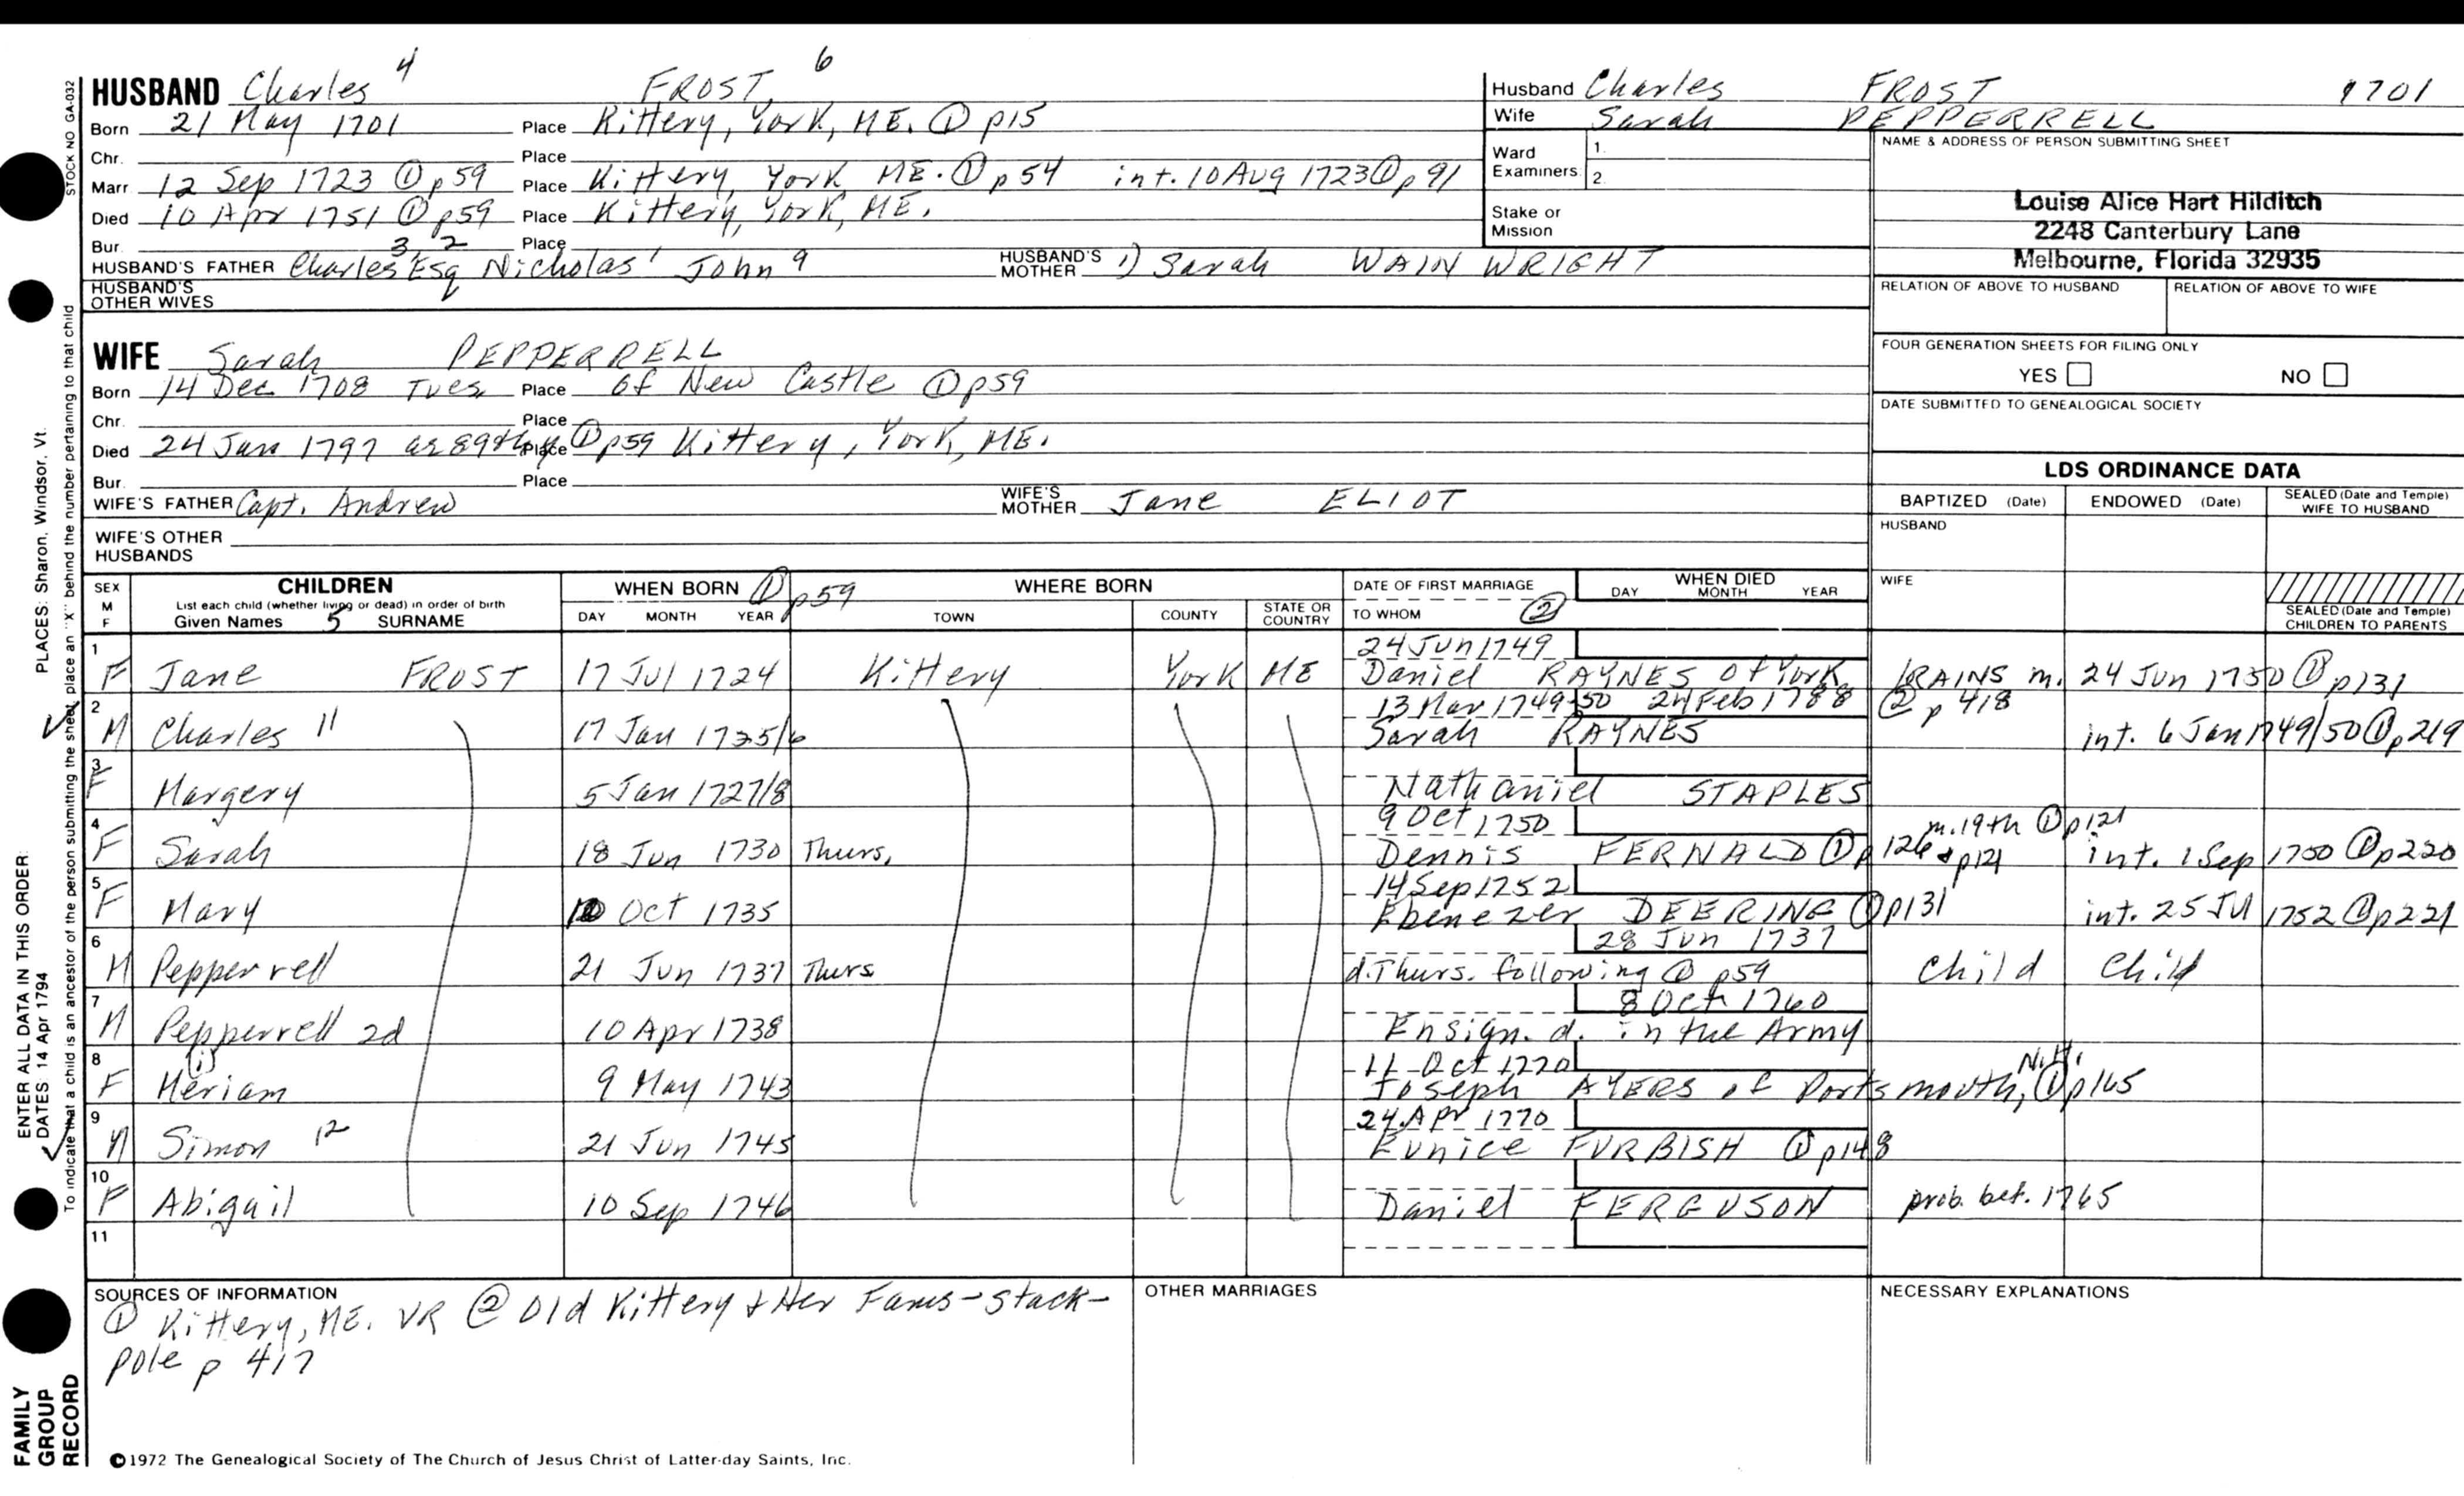 HUSBAND Charles 4 FROST 6
Born 21 May 1701 Place Kittery, York, ME. ① p15
Chr. Place
Marr. 12 Sep 1723 ① p59 Place Kittery, York, ME. ① p54 int. 10 Aug 1723 ① p91
Died 10 Apr 1751 ① p59 Place Kittery, York, ME.
Bur. Place
HUSBAND'S FATHER Charles 3 Esq 2 Nicholas 1 John 9 HUSBAND'S MOTHER 1) Sarah WAINWRIGHT
HUSBAND'S OTHER WIVES
Husband Charles FROST 1701
Wife Sarah PEPPERRELL
Ward Examiners 1. 2.
Stake or Mission
NAME & ADDRESS OF PERSON SUBMITTING SHEET
Louise Alice Hart Hilditch
2248 Canterbury Lane
Melbourne, Florida 32935
RELATION OF ABOVE TO HUSBAND RELATION OF ABOVE TO WIFE
FOUR GENERATION SHEETS FOR FILING ONLY
YES NO
DATE SUBMITTED TO GENEALOGICAL SOCIETY
WIFE Sarah PEPPERRELL
Born 14 Dec 1708 Tues Place of New Castle ① p59
Chr. Place
Died 24 Jan 1797 ae 89th y Place ① p59 Kittery, York, ME.
Bur. Place
WIFE'S FATHER Capt. Andrew WIFE'S MOTHER Jane ELIOT
WIFE'S OTHER HUSBANDS
LDS ORDINANCE DATA
BAPTIZED (Date) ENDOWED (Date) SEALED (Date and Temple) WIFE TO HUSBAND
HUSBAND
WIFE
SEALED (Date and Temple) CHILDREN TO PARENTS
SEX M F CHILDREN List each child (whether living or dead) in order of birth Given Names 5 SURNAME
WHEN BORN ① p59 DAY MONTH YEAR
WHERE BORN TOWN COUNTY STATE OR COUNTRY
DATE OF FIRST MARRIAGE TO WHOM ②
WHEN DIED DAY MONTH YEAR
24 Jun 1749
1 F Jane FROST 17 Jul 1724 Kittery York ME Daniel RAYNES of York RAINS m. 24 Jun 1750 ① p131
13 Mar 1749-50 24 Feb 1788 ② p 418
2 M Charles 11 17 Jan 1725/6 Sarah RAYNES int. 6 Jan 1749/50 ① p219
3 F Margery 5 Jan 1727/8 Nathaniel STAPLES
9 Oct 1750 m. 19th ① p121
4 F Sarah 18 Jun 1730 Thurs. Dennis FERNALD ① p 126 & p121 int. 1 Sep 1750 ① p220
14 Sep 1752
5 F Mary Oct 1735 Ebenezer DEERING ① p131 int. 25 Jul 1752 ① p221
28 Jun 1737
6 M Pepperrell 21 Jun 1737 Thurs d. Thurs. following ① p59 Child Child
8 Oct 1760
7 M Pepperrell 2d 10 Apr 1738 Ensign. d. in the Army
11 Oct 1770
8 F Meriam (i) 9 May 1743 Joseph AYERS of Portsmouth, N.H. ① p165
24 Apr 1770
9 M Simon 12 21 Jun 1745 Eunice FURBISH ① p148
10 F Abigail 10 Sep 1746 Daniel FERGUSON prob. bef. 1765
11
SOURCES OF INFORMATION
① Kittery, ME. VR ② Old Kittery & Her Fams-Stack-
pole p 417
OTHER MARRIAGES
NECESSARY EXPLANATIONS
©1972 The Genealogical Society of The Church of Jesus Christ of Latter-day Saints, Inc.
STOCK NO GA-032
PLACES: Sharon, Windsor, Vt.
ENTER ALL DATA IN THIS ORDER:
DATES: 14 Apr 1794
To indicate that a child is an ancestor of the person submitting the sheet, place an "X" behind the number pertaining to that child
FAMILY
GROUP
RECORD